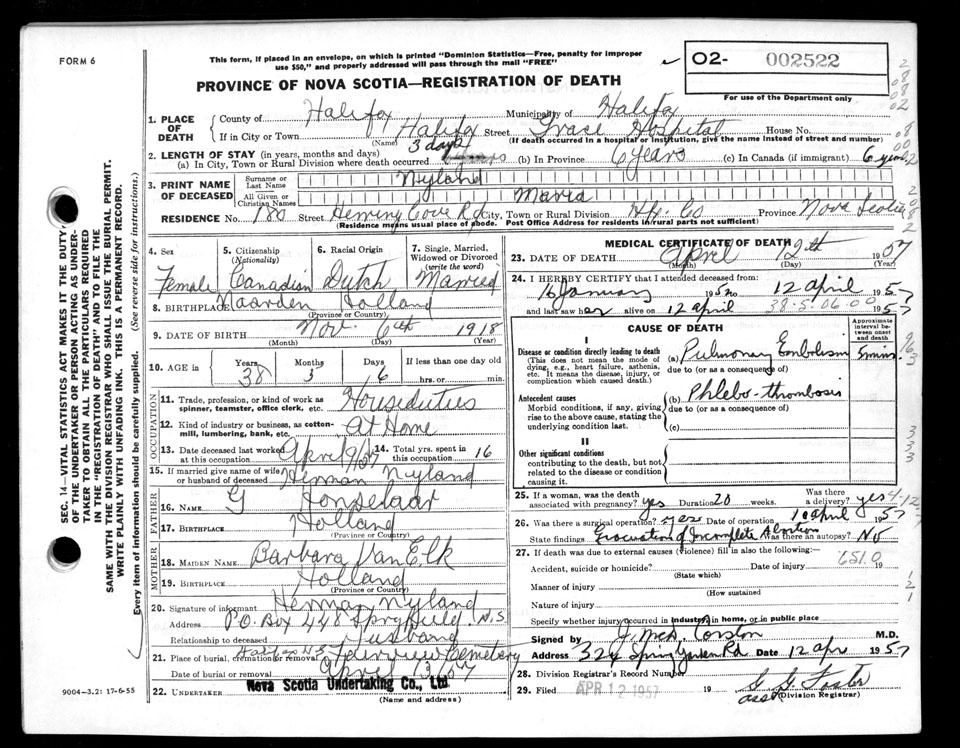 FORM 6
This form, if placed in an envelope, on which is printed "Dominion Statistics—Free, penalty for improper
use $50," and properly addressed will pass through the mail "FREE"
PROVINCE OF NOVA SCOTIA—REGISTRATION OF DEATH
02- 002522
For use of the Department only
1. PLACE OF DEATH
County of Halifax Municipality of Halifax
If in City or Town Halifax Street Grace Hospital House No.
(Name) (If death occurred in a hospital or institution, give the name instead of street and number)
2. LENGTH OF STAY (in years, months and days) 3 days
(a) In City, Town or Rural Division where death occurred (b) In Province 6 years (c) In Canada (if immigrant) 6 years
3. PRINT NAME OF DECEASED
Surname or Last Name Nyland
All Given or Christian Names Maria
RESIDENCE No. 180 Street Herring Cove Rd City, Town or Rural Division Hfx Co Province Nova Scotia
(Residence means usual place of abode. Post Office Address for residents in rural parts not sufficient)
4. Sex Female
5. Citizenship (Nationality) Canadian
6. Racial Origin Dutch
7. Single, Married, Widowed or Divorced (write the word) Married
8. BIRTHPLACE Naarden Holland
(Province or Country)
9. DATE OF BIRTH Nov. 6th 1918
(Month) (Day) (Year)
10. AGE in Years 38 Months 3 Days 6 If less than one day old
hrs. or min.
OCCUPATION
11. Trade, profession, or kind of work as
spinner, teamster, office clerk, etc. Houseduties
12. Kind of industry or business, as cotton-
mill, lumbering, bank, etc. At Home
13. Date deceased last worked at this occupation April 9/57 14. Total yrs. spent in this occupation 16
15. If married give name of wife or husband of deceased Herman Nyland
FATHER
16. NAME G Honselaar
17. BIRTHPLACE Holland
(Province or Country)
MOTHER
18. MAIDEN NAME Barbara Van Elk
19. BIRTHPLACE Holland
(Province or Country)
20. Signature of informant Herman Nyland
Address P.O. Box 448 Spryfield N.S.
Relationship to deceased Husband
21. Place of burial, cremation or removal Halifax N.S Fairview Cemetery
Date of burial or removal April 13/57
22. UNDERTAKER Nova Scotia Undertaking Co., Ltd.
(Name and address)
MEDICAL CERTIFICATE OF DEATH
23. DATE OF DEATH April 12th 1957
(Month) (Day) (Year)
24. I HEREBY CERTIFY that I attended deceased from:
16 January 1957 to 12 april 1957
and last saw her alive on 12 april 1957
38-5-06.00
CAUSE OF DEATH
Approximate interval between onset and death
I
Disease or condition directly leading to death
(This does not mean the mode of dying, e.g., heart failure, asthenia, etc. It means the disease, injury, or complication which caused death.)
(a) Pulmonary Embolism 5 mins.
due to (or as a consequence of)
Antecedent causes
Morbid conditions, if any, giving rise to the above cause, stating the underlying condition last.
(b) Phlebo-thrombosis
due to (or as a consequence of)
(c)
II
Other significant conditions
contributing to the death, but not related to the disease or condition causing it.
25. If a woman, was the death associated with pregnancy? yes Duration 20 weeks. Was there a delivery? yes
26. Was there a surgical operation? yes Date of operation 10 april 1957
State findings Evacuation of Incomplete Abortion Was there an autopsy? No
27. If death was due to external causes (violence) fill in also the following:—
Accident, suicide or homicide? Date of injury 19
651.0
(State which)
Manner of injury
(How sustained)
Nature of injury
Specify whether injury occurred in industry, in home, or in public place
Signed by J. McD. Corston M.D.
Address 324 Spring Garden Rd Date 12 apr 1957
28. Division Registrar's Record Number
29. Filed APR 12 1957 19
G G Foster
asst (Division Registrar)
SEC. 14—VITAL STATISTICS ACT MAKES IT THE DUTY OF THE UNDERTAKER OR PERSON ACTING AS UNDERTAKER TO OBTAIN ALL THE PARTICULARS REQUIRED IN THE "REGISTRATION OF DEATH" AND TO FILE THE SAME WITH THE DIVISION REGISTRAR WHO SHALL ISSUE THE BURIAL PERMIT.
WRITE PLAINLY WITH UNFADING INK. THIS IS A PERMANENT RECORD.
Every item of information should be carefully supplied. (See reverse side for instructions.)
9004-3.21: 17-6-55